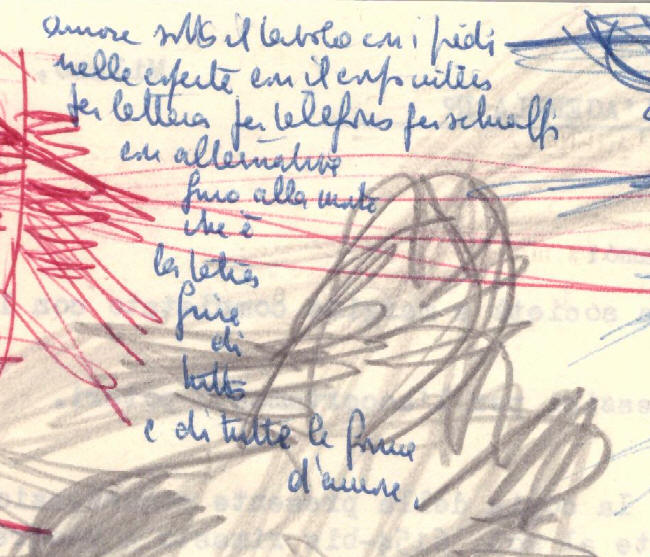 amore sotto il tavolo con i piedi
nelle coperte con il corpo intero
per lettera per telefono per schiaffi
con alternative
fino alla morte
che è
la
fine
di
tutto
e di tutte le forme
d'amore.